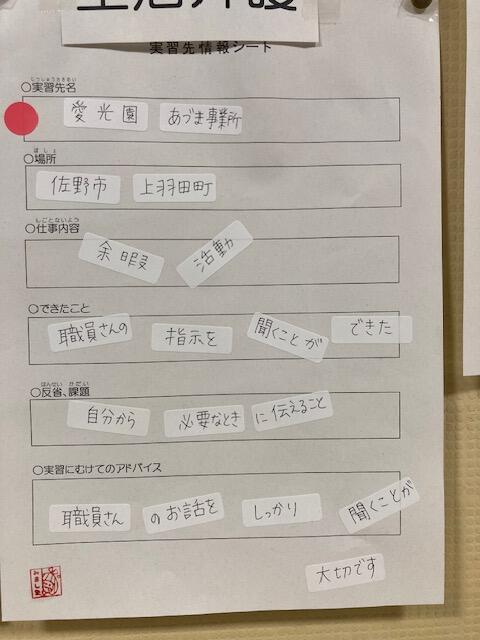 生活介護
実習先情報シート
じっしゅうさきめい
○実習先名
愛光園 あづま事業所
ばしょ
○場所
佐野市 上羽田町
しごとないよう
○仕事内容
余暇 活動
○できたこと
職員さんの 指示を 聞くことが できた
はんせい かだい
○反省、課題
自分から 必要なとき に伝えること
○実習にむけてのアドバイス
職員さん のお話を しっかり 聞くことが
大切です